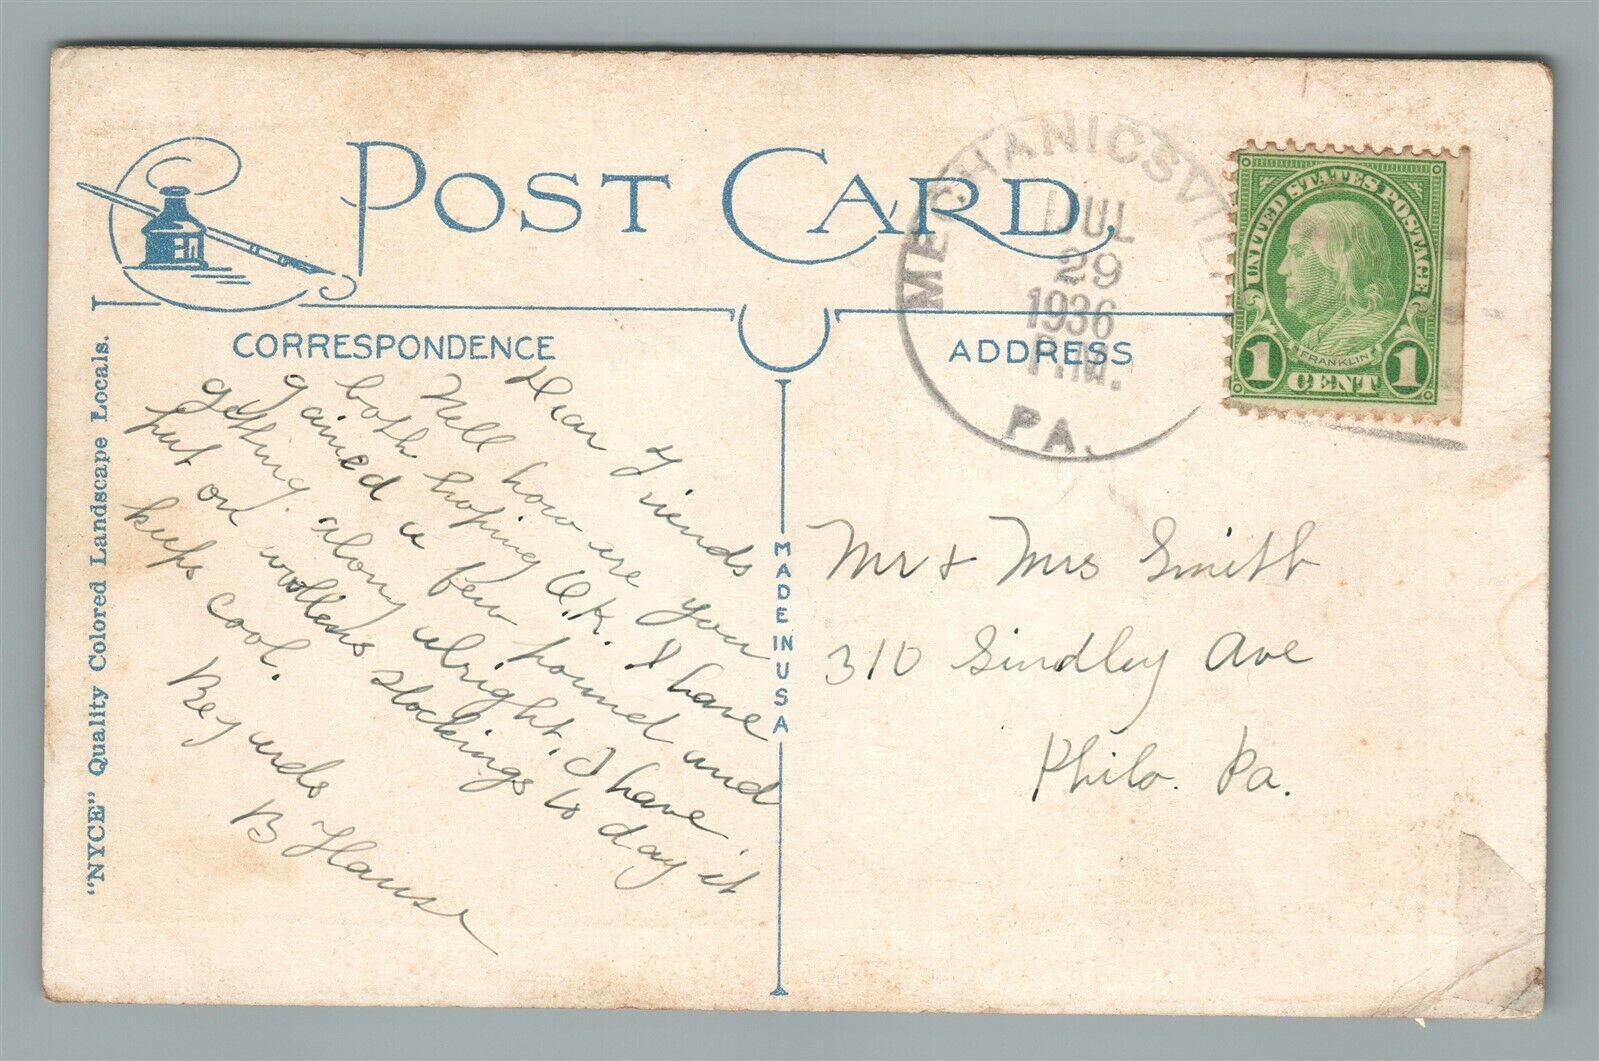 POST CARD
CORRESPONDENCE
ADDRESS
"NYCE" Quality Colored Landscape Locals.
MADE IN USA
MECHANICSVIL
JUL
29
1936
P.M.
PA.
UNITED STATES POSTAGE
FRANKLIN
1 CENT 1
Dear Friends
Well how are you
both hoping O.K. I have
gained a few pound and
getting along alright. I have
put on wollens stockings to day it
keeps cool.
Regards
B
Mr & Mrs Smith
310 Lindley Ave
Phila. Pa.